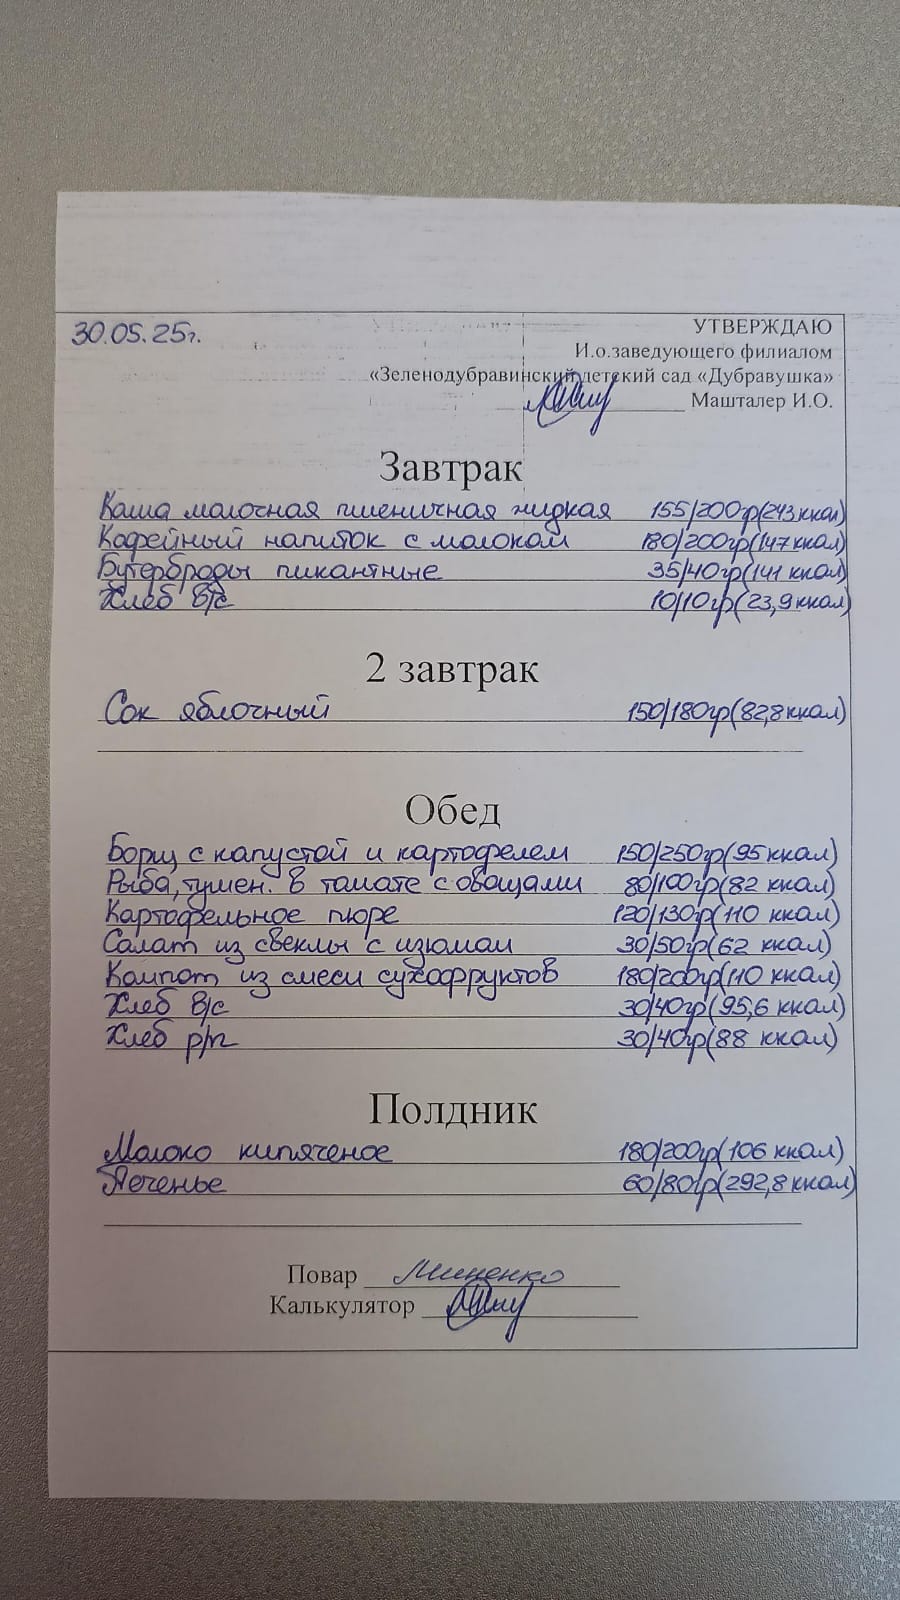 30.05.25г.
УТВЕРЖДАЮ
И.о.заведующего филиалом
«Зеленодубравинский детский сад «Дубравушка»
Машталер И.О.
Завтрак
Каша молочная пшеничная жидкая 155/200гр(243ккал)
Кофейный напиток с молоком 180/200гр(147ккал)
Бутерброды пикантные 35/40гр(141 ккал)
Хлеб в/с 10/10гр(23,9ккал)
2 завтрак
Сок яблочный 150/180гр(82,8ккал)
Обед
Борщ с капустой и картофелем 150/250гр(95ккал)
Рыба, тушен. в томате с овощами 80/100гр(82 ккал)
Картофельное пюре 120/130гр(110 ккал)
Салат из свеклы с изюмом 30/50гр(62 ккал)
Компот из смеси сухофруктов 180/200гр(110 ккал)
Хлеб в/с 30/40гр(95,6 ккал)
Хлеб р/п 30/40гр(88 ккал)
Полдник
Молоко кипяченое 180/200гр(106 ккал)
Печенье 60/80гр(292,8ккал)
Повар Миненко
Калькулятор